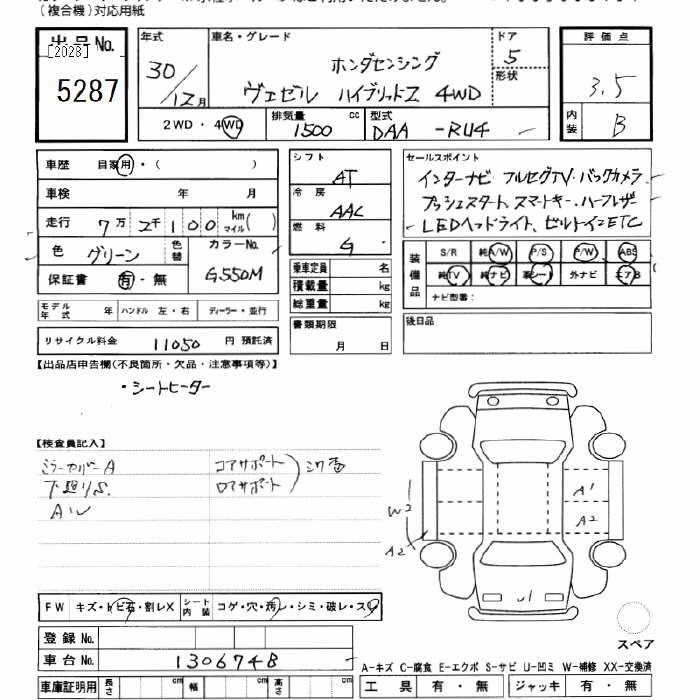 （複合機）対応用紙
出品No.
[2023]
5287
年式
30
12月
車名・グレード
ホンダセンシング
ヴェゼル ハイブリッドZ 4WD
ドア
5
形状
評価点
3.5
内装
B
2WD・4WD
排気量
1500 cc
型式
DAA -RU4
車歴 自家用・( )
車検 年 月
走行 7万 2千 100 km マイル( )
色 グリーン 色替
カラーNo.
G550M
保証書 有・無
モデル年式 年 ハンドル 左・右 ディーラー・並行
リサイクル料金 11050 円 預託済
シフト
AT
冷房
AAC
燃料
G
乗車定員 名
積載量 kg
総重量 kg
書類期限
月 日
セールスポイント
インターナビ フルセグTV・バックカメラ
プッシュスタート スマートキー・ハーフレザー
LEDヘッドライト、ビルトインETC
装備品
S/R 純A/W P/S P/W ABS
純TV 純ナビ 革シート 外ナビ エアB
ナビ型番：
後日品
【出品店申告欄(不良箇所・欠品・注意事項等)】
・シートヒーター
【検査員記入】
ミラーカバーA
下廻りS.
AW
コアサポート
ロアサポート
A1
A2
W2
A2
U1
FW キズ・トビ石・割レX シート内装 コゲ・穴・汚レ・シミ・破レ・スレ
登録No.
車台No. 1306748
車庫証明用 長さ cm 幅 cm 高さ cm
スペア
A-キズ C-腐食 E-エクボ S-サビ U-凹ミ W-補修 XX-交換済
工具 有・無 ジャッキ 有・無